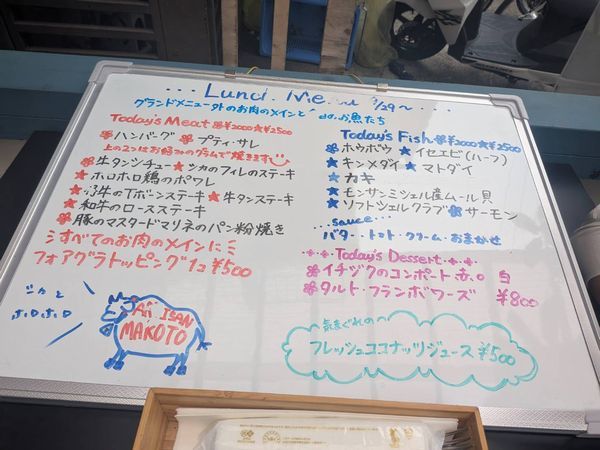 ...Lunch. Menu 9/29〜...
グランドメニュー外のお肉のメインと お魚たち
Today's Meat ❀¥2000★¥2500
❀ハンバーグ ❀プティ・サレ
上の2つはお好みのグラムで焼きます
★牛タンシチュー ★シカのフィレのステーキ
★ホロホロ鶏のポワレ
★仔牛のTボーンステーキ ★牛タンステーキ
★和牛のロースステーキ
❀豚のマスタードマリネのパン粉焼き
すべてのお肉のメインに
フォアグラトッピング 1コ ¥500
Today's Fish ❀¥2000★¥2500
❀ホウボウ ★イセエビ(ハーフ)
★キンメダイ ★マトダイ
★カキ
★モンサンミシェル産ムール貝
★ソフトシェルクラブ ❀サーモン
...sauce...
バター・トマト・クリーム・おまかせ
Today's Dessert
❀イチヂクのコンポート 赤 or 白
❀タルト・フランボワーズ ¥800
気まぐれの
フレッシュココナッツジュース ¥500
シカと
ホロホロ
Ai. ISAN
MAKOTO